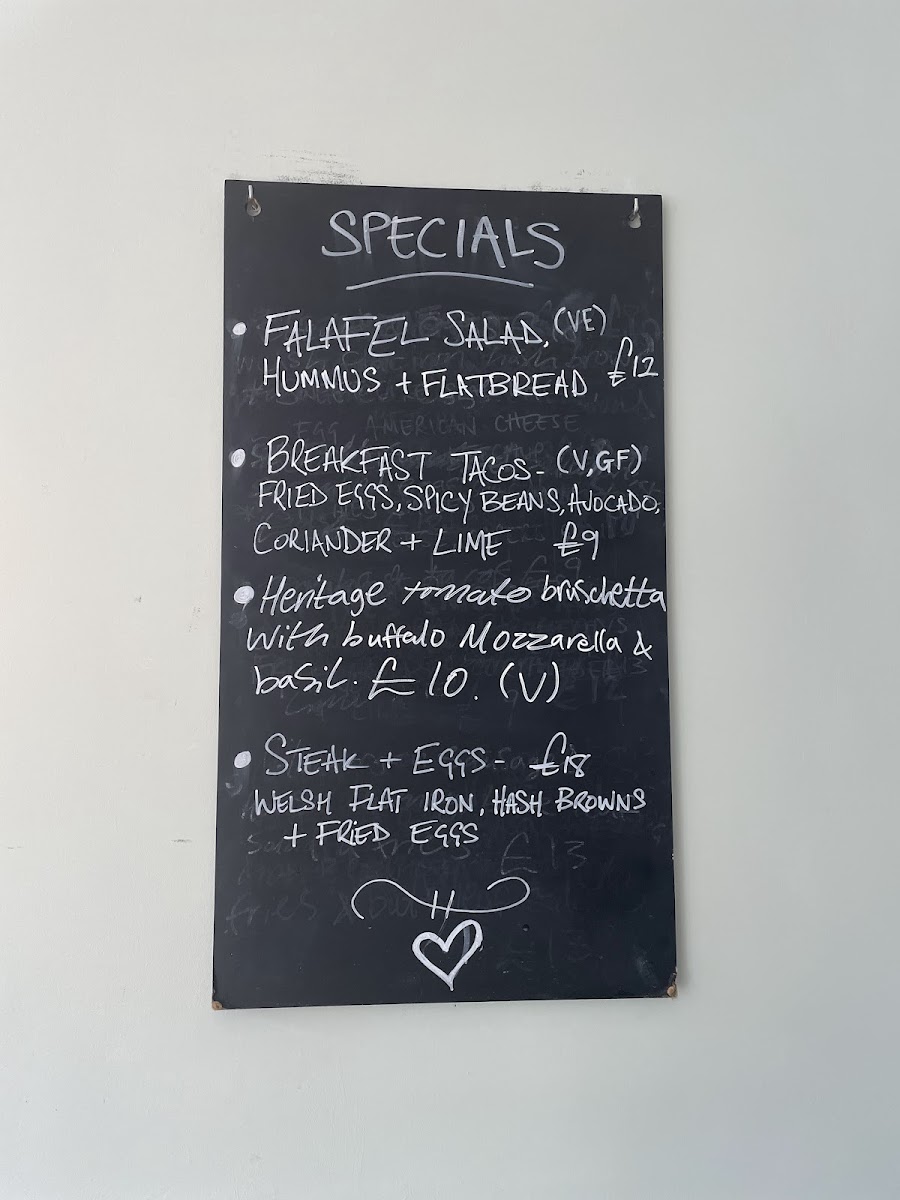 SPECIALS
• FALAFEL SALAD, (VE)
HUMMUS + FLATBREAD £12
EGG AMERICAN CHEESE
• BREAKFAST TACOS - (V,GF)
FRIED EGGS, SPICY BEANS, AVOCADO,
CORIANDER + LIME £9
• Heritage tomato bruschetta
with buffalo Mozzarella &
basil. £10. (V)
• STEAK + EGGS - £18
WELSH FLAT IRON, HASH BROWNS
+ FRIED EGGS
£13
fries